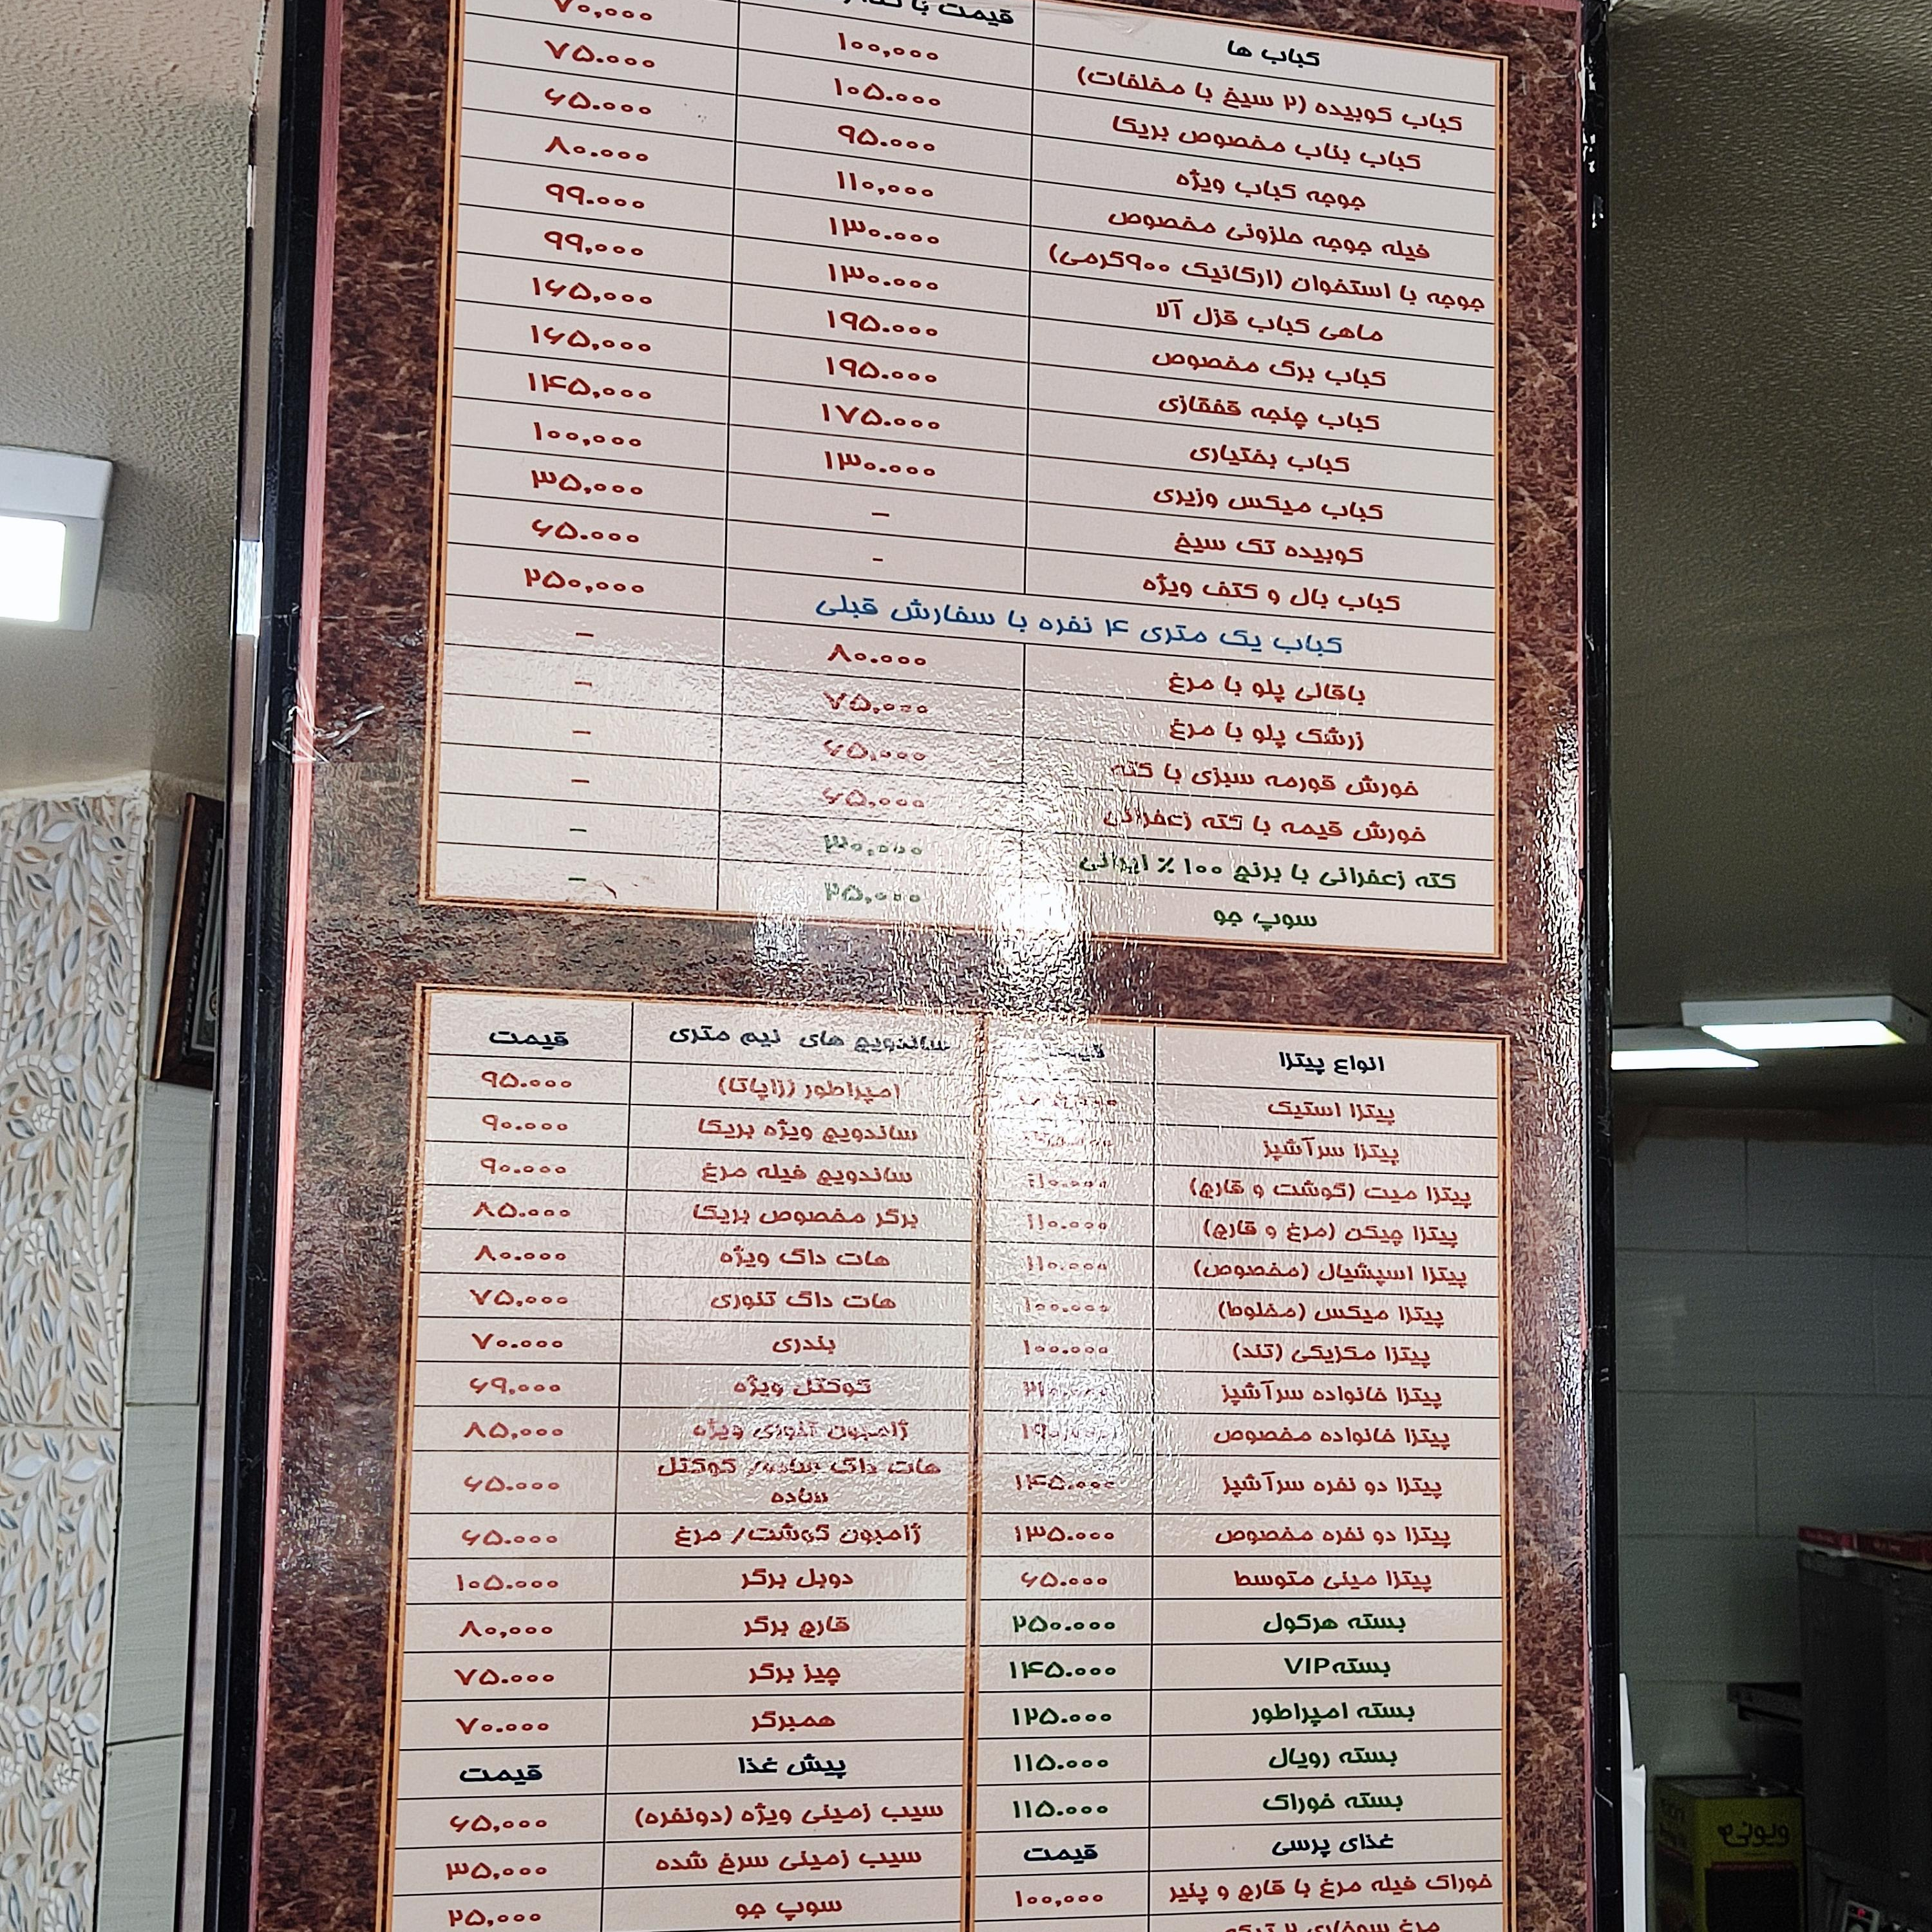 کباب ها قیمت با
کباب کوبیده (۲ سیخ با مخلفات) ۱۰۰,۰۰۰ ۷۰,۰۰۰
کباب بناب مخصوص بریکا ۱۰۵.۰۰۰ ۷۵.۰۰۰
جوجه کباب ویژه ۹۵.۰۰۰ ۶۵.۰۰۰
فیله جوجه حلزونی مخصوص ۱۱۰,۰۰۰ ۸۰.۰۰۰
جوجه با استخوان (ارگانیک ۹۰۰گرمی) ۱۳۰.۰۰۰ ۹۹.۰۰۰
ماهی کباب قزل آلا ۱۳۰.۰۰۰ ۹۹,۰۰۰
کباب برگ مخصوص ۱۹۵.۰۰۰ ۱۶۵,۰۰۰
کباب چنجه قفقازی ۱۹۵.۰۰۰ ۱۶۵,۰۰۰
کباب بختیاری ۱۷۵.۰۰۰ ۱۴۵,۰۰۰
کباب میکس وزیری ۱۳۰.۰۰۰ ۱۰۰,۰۰۰
کوبیده تک سیخ – ۳۵,۰۰۰
کباب بال و کتف ویژه - ۶۵.۰۰۰
کباب یک متری ۴ نفره با سفارش قبلی ۲۵۰,۰۰۰
باقالی پلو با مرغ ۸۰.۰۰۰ –
زرشک پلو با مرغ ۷۵,۰۰۰ –
خورش قورمه سبزی با کته ۶۵,۰۰۰ –
خورش قیمه با کته زعفرانی ۶۵,۰۰۰ –
کته زعفرانی با برنج ۱۰۰ ٪ ایرانی ۳۰,۰۰۰ –
سوپ جو ۲۵,۰۰۰ –
انواع پیتزا قیمت
پیتزا استیک
پیتزا سرآشپز
پیتزا میت (گوشت و قارچ) ۱۱۰.۰۰۰
پیتزا چیکن (مرغ و قارچ) ۱۱۰.۰۰۰
پیتزا اسپشیال (مخصوص) ۱۱۰.۰۰۰
پیتزا میکس (مخلوط) ۱۰۰.۰۰۰
پیتزا مکزیکی (تند) ۱۰۰.۰۰۰
پیتزا خانواده سرآشپز
پیتزا خانواده مخصوص
پیتزا دو نفره سرآشپز ۱۴۵.۰۰۰
پیتزا دو نفره مخصوص ۱۳۵.۰۰۰
پیتزا مینی متوسط ۶۵.۰۰۰
بسته هرکول ۲۵۰.۰۰۰
بسته VIP ۱۴۵.۰۰۰
بسته امپراطور ۱۲۵.۰۰۰
بسته رویال ۱۱۵.۰۰۰
بسته خوراک ۱۱۵.۰۰۰
غذای پرسی قیمت
خوراک فیله مرغ با قارچ و پنیر ۱۰۰,۰۰۰
مرغ سوخاری ۲ تیکه
ساندویچ های نیم متری قیمت
امپراطور (زاپاتا) ۹۵.۰۰۰
ساندویچ ویژه بریکا ۹۰.۰۰۰
ساندویچ فیله مرغ ۹۰.۰۰۰
برگر مخصوص بریکا ۸۵.۰۰۰
هات داگ ویژه ۸۰.۰۰۰
هات داگ تنوری ۷۵,۰۰۰
بندری ۷۰.۰۰۰
کوکتل ویژه ۶۹,۰۰۰
ژامبون تنوری ویژه ۸۵,۰۰۰
هات داگ ساده/ کوکتل
ساده ۶۵.۰۰۰
ژامبون گوشت/ مرغ ۶۵.۰۰۰
دوبل برگر ۱۰۵.۰۰۰
قارچ برگر ۸۰,۰۰۰
چیز برگر ۷۵.۰۰۰
همبرگر ۷۰.۰۰۰
پیش غذا قیمت
سیب زمینی ویژه (دونفره) ۶۵,۰۰۰
سیب زمینی سرخ شده ۳۵,۰۰۰
سوپ جو ۲۵,۰۰۰